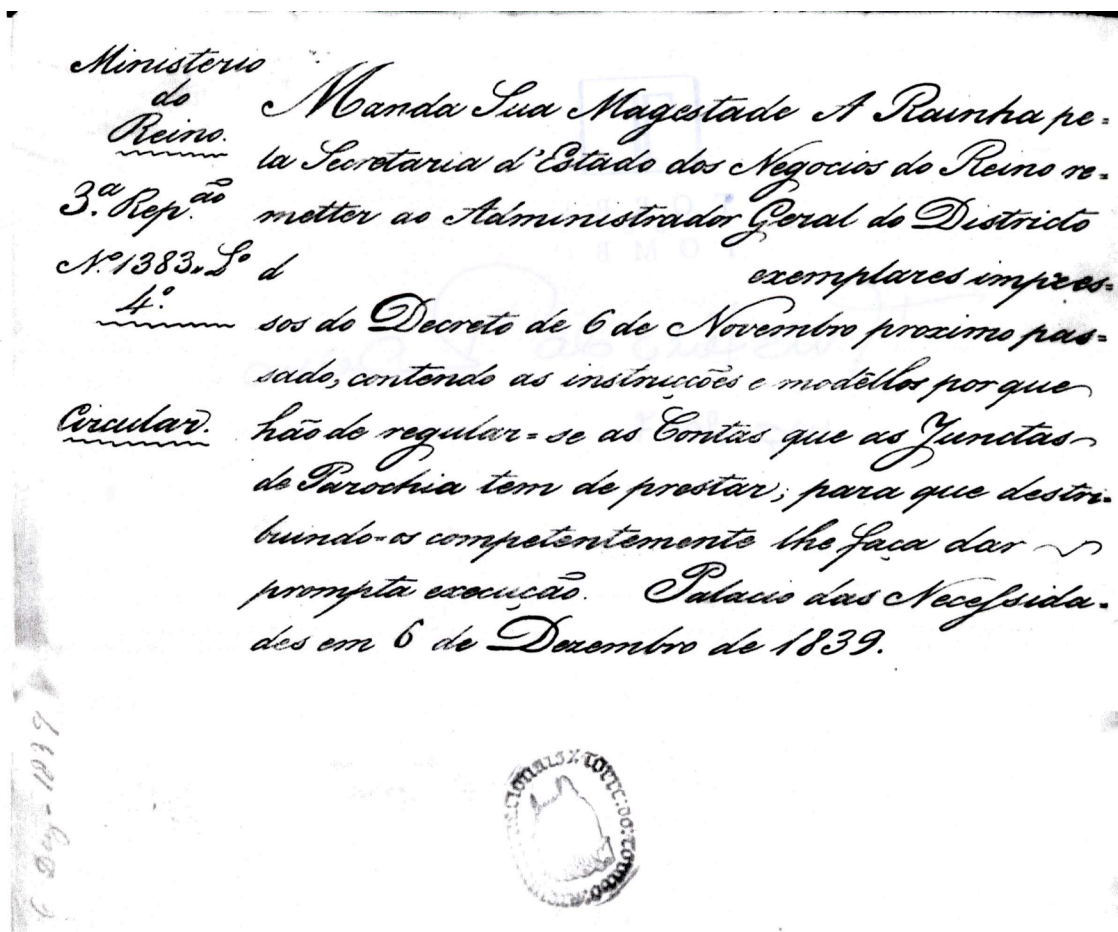 Ministerio
do
Reino.
3.ª Rep.ção
N.º 1383. L.º
4.º
Circular.
Manda Sua Magestade A Rainha pe=
la Secretaria d'Estado dos Negocios do Reino re=
metter ao Administrador Geral do Districto
d exemplares impres=
sos do Decreto de 6 de Novembro proximo pas=
sado, contendo as instrucções e modêllos por que
hão de regular=se as Contas que as Junctas
de Parochia tem de prestar; para que destri=
buindo=os competentemente lhe faça dar
prompta execução. Palacio das Necessida=
des em 6 de Dezembro de 1839.
6 Dez- 1839
TORRE:DO:TOMBO